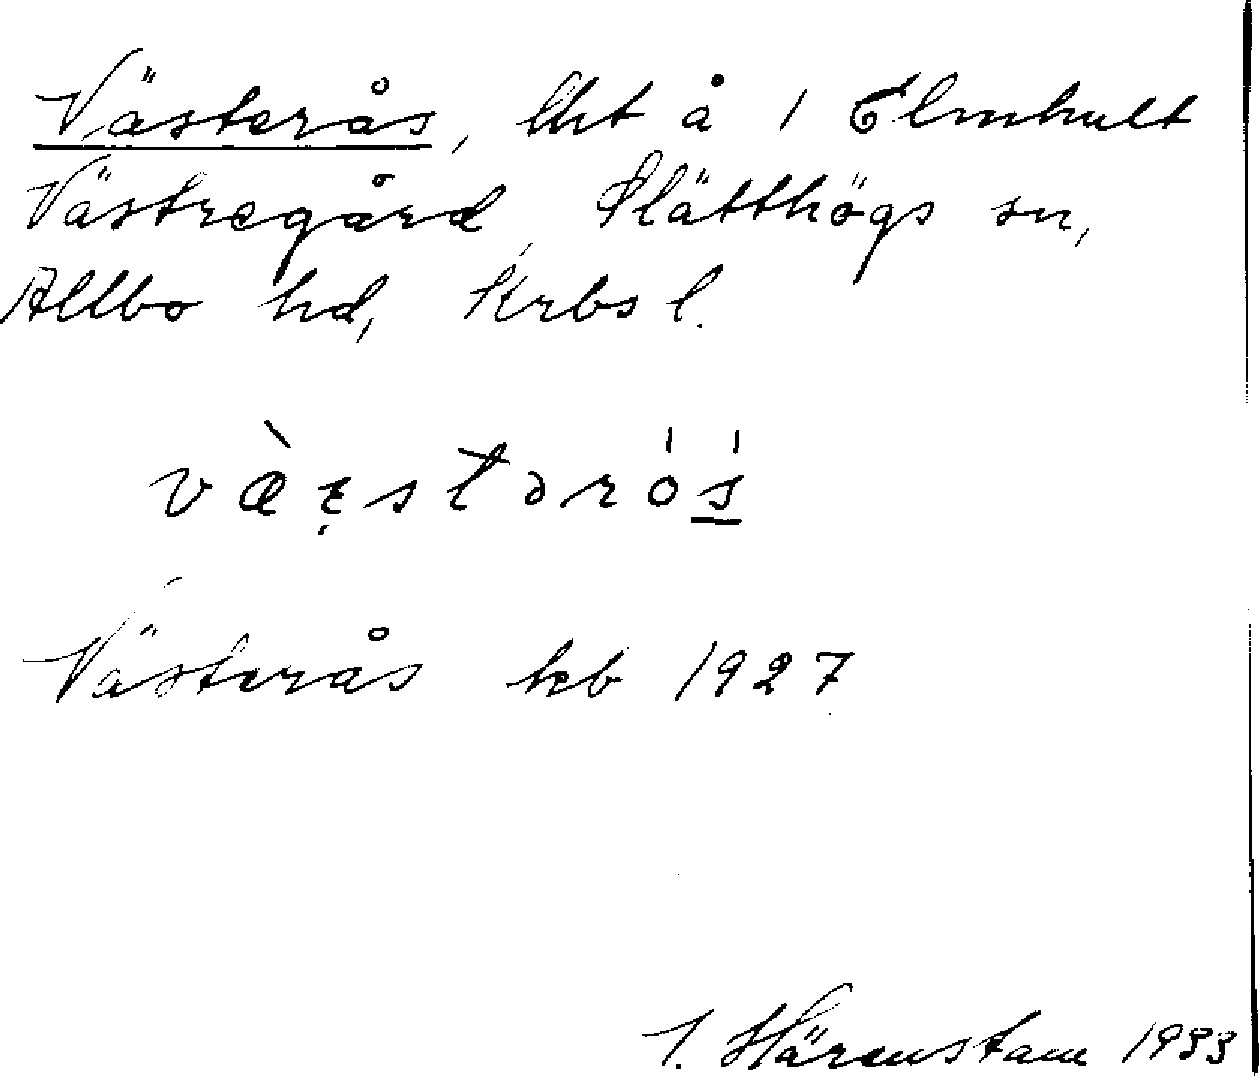 Västerås, lht å 1 Elmhult
Västregård, Slätthögs sn,
Allbo hd, Krbs l.
væ̀ꜫ̣stərós
Västerås kb 1927
I. Härenstam 1933